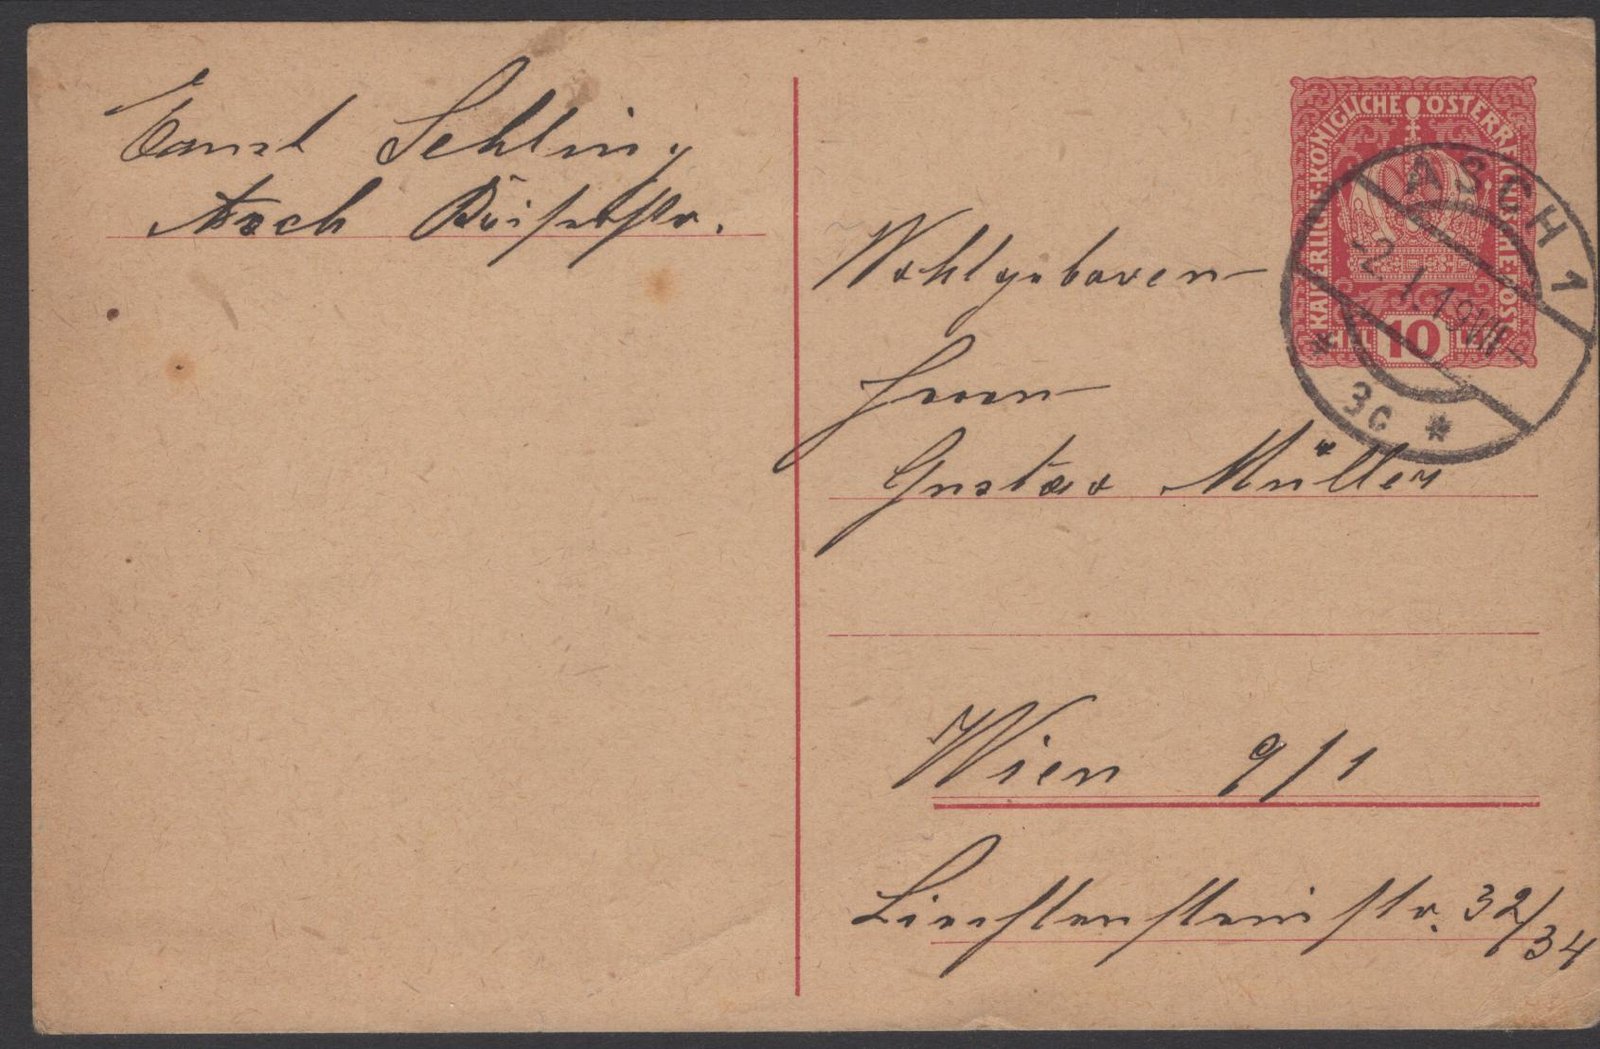 Ernst Schling
Asch
KAISERLICHE·KÖNIGLICHE ÖSTERREICHISCHE·POST
HEL 10 LER
ASCH 1
3c
Wohlgeboren
Herrn
Gustav Müller
Wien 9/1
Liechtensteinstr. 32/34